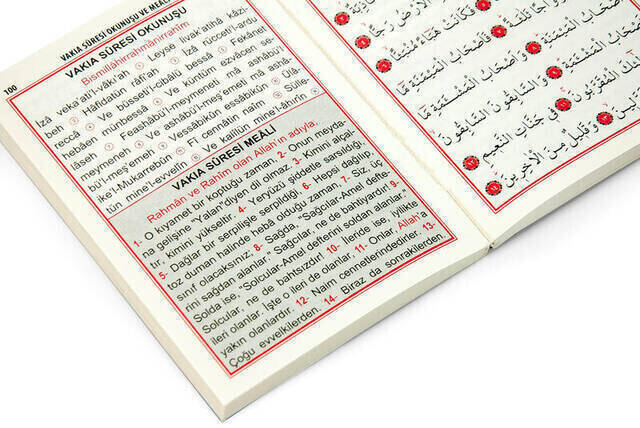 100
VAKIA SÛRESİ OKUNUŞU VE MEALİ
VAKIA SÛRESİ OKUNUŞU
Bismillâhirrahmânirrahîm
İzâ veka'ati'l-vâkı'ah Leyse livak'atihâ kâzi-
beh Hâfidatün râfi'ah İzâ rucceti'l-ardu
reccâ Ve büsseti'l-cibâlü bessâ Fekânet
hebâen münbessâ Ve küntüm ezvâcen se-
lâseh Feashâbü'l-meymeneti mâ ashâbü'l-
meymeneh Ve ashâbü'l-meş'emeti mâ ashâ-
bü'l-meş'emeh Vessâbikûn essâbikûn Ülâ-
ike'l-Mukarrebûn Fî cennâtin naîm Sülle-
tün mine'l-evvelîn Ve kalîlün mine'l-âhirîn
VAKIA SÛRESİ MEALİ
Rahmân ve Rahîm olan Allah'ın adıyla.
1- O kıyamet bir koptuğu zaman, 2- Onun meyda-
na gelişine "Yalan"diyen dil olmaz. 3- Kimini alçal-
tır, kimini yükseltir. 4- Yeryüzü şiddetle sarsıldığı,
5- Dağlar bir serpilişle serpildiği, 6- Hepsi dağılıp,
toz duman halinde hebâ olduğu zaman. 7- Siz, üç
sınıf olacaksınız; 8- Sağda, "Sağcılar-Amel defte-
rini sağdan alanlar." Sağcılar, ne de bahtiyardır! 9-
Solda ise, "Solcular-Amel defterini soldan alanlar.
Solcular, ne de bahtsızdır! 10- İleride ise, iyilikte
ileri olanlar. İşte o ileri de olanlar. 11- Onlar, Allah'a
yakın olanlardır. 12- Naim cennetlerindedirler. 13-
Çoğu evvelkilerden. 14- Biraz da sonrakilerden.
فَكَانَتْ هَبَاءً مُنْبَثًّا
وَأَصْحَابُ الْمَشْـَٔمَةِ مَا
وَالسَّابِقُونَ السَّابِقُونَ
الْمُقَرَّبُونَ فِي جَنَّاتِ النَّعِيمِ
وَقَلِيلٌ مِنَ الْآخِرِينَ